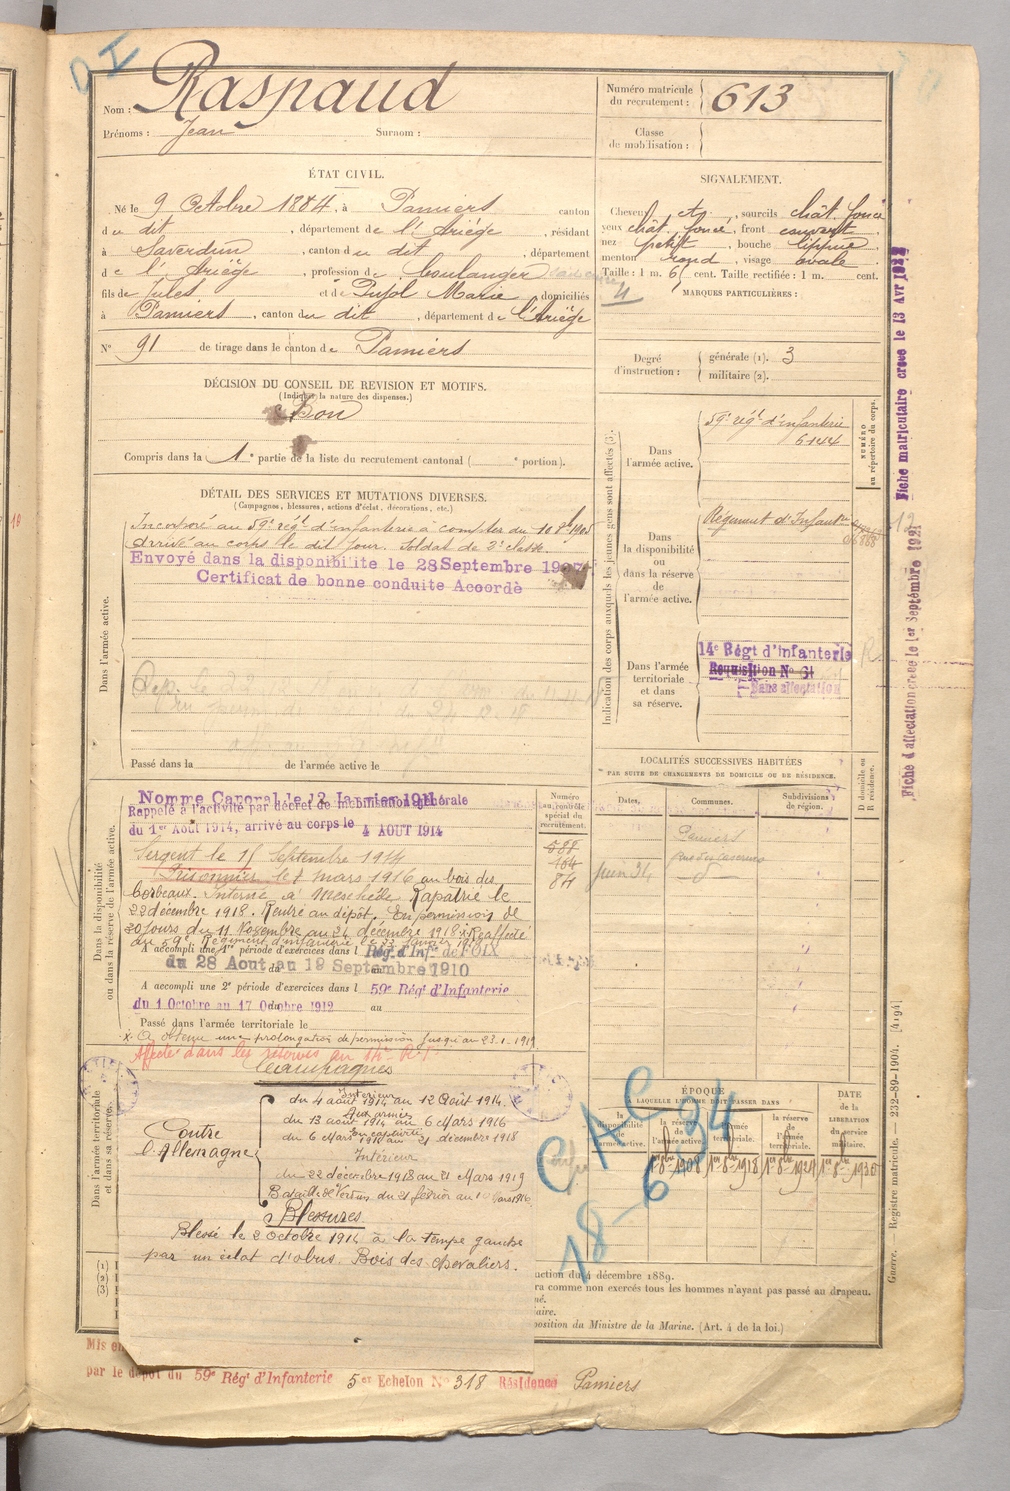 Nom : Raspaud
Prénoms : Jean Surnom :
Numéro matricule du recrutement : 613
Classe de mobilisation :
ÉTAT CIVIL.
Né le 9 Octobre 1884, à Pamiers canton
du dit, département de l'Ariège, résidant
à Saverdun, canton du dit, département
de l'Ariège, profession de boulanger
fils de Jules et de Pujol Marie domiciliés
à Pamiers, canton du dit, département de l'Ariège
N° 91 de tirage dans le canton de Pamiers
SIGNALEMENT.
Cheveux ch., sourcils chât. foncé
yeux chât. foncé, front couvert
nez petit, bouche lippue
menton rond, visage ovale
Taille : 1 m. 61 cent. Taille rectifiée : 1 m. cent.
4
MARQUES PARTICULIÈRES :
Degré d'instruction : générale (1). 3
militaire (2).
DÉCISION DU CONSEIL DE REVISION ET MOTIFS.
(Indiquer la nature des dispenses.)
Bon
Compris dans la 1e partie de la liste du recrutement cantonal ( e portion).
DÉTAIL DES SERVICES ET MUTATIONS DIVERSES.
(Campagnes, blessures, actions d'éclat, décorations, etc.)
Dans l'armée active.
Incorporé au 59e régt d'infanterie à compter du 10 8bre 1905
Arrivé au corps le dit jour. Soldat de 2e classe.
Envoyé dans la disponibilité le 28 Septembre 1907
Certificat de bonne conduite Accordé
Passé dans la de l'armée active le
Indication des corps auxquels les jeunes gens sont affectés (3).
NUMÉRO au répertoire du corps.
Dans l'armée active.
59e régt d'infanterie
6144
Dans la disponibilité ou dans la réserve de l'armée active.
Régiment d'Infanterie
Dans l'armée territoriale et dans sa réserve.
14e Régt d'infanterie
Requisition No 61
Sans affectation
Fiche matriculaire creee le 13 Avr 1922
Fiche d affectation creee le 1er Septembre 1921
LOCALITÉS SUCCESSIVES HABITÉES
PAR SUITE DE CHANGEMENTS DE DOMICILE OU DE RÉSIDENCE.
Numéro au contrôle spécial du recrutement.
Dates. Communes. Subdivisions de région. D domicile ou R résidence.
588
164
84
Pamiers
Juin 34 rue des casernes
Dans la disponibilité ou dans la réserve de l'armée active.
Nommé Caporal le 12 Janvier 1911
Rappelé à l'activité par décret de mobilisation générale
du 1er Août 1914, arrivé au corps le 4 AOUT 1914
Sergent le 15 Septembre 1914
Prisonnier le 8 mars 1916 au bois des
Corbeaux. Interné à Meschede Rapatrié le
22 décembre 1918. Rentré au dépôt. En permission de
30 jours du 11 Novembre au 24 décembre 1918 x Réaffecté
au 59e Régiment d'infanterie le 23 Janvier
A accompli une 1re période d'exercices dans l Rég. d'Inf. de FOIX
du 28 Aout au 19 Septembre 1910
A accompli une 2e période d'exercices dans l 59e Régt d'Infanterie
du 1 Octobre au 17 Octobre 1912
Passé dans l'armée territoriale le
x A obtenu une prolongation de permission jusqu'au 23-1-1919
Affecté dans les réserves au 14e R.I.
Dans l'armée territoriale et dans sa réserve.
Campagnes
Contre l'Allemagne
Intérieur
du 4 août 1914 au 12 Août 1914.
Aux armées
du 13 août 1914 au 6 Mars 1916
En captivité
du 6 Mars 1916 au 21 décembre 1918
Intérieur
du 22 décembre 1918 au 21 Mars 1919
Bataille de Verdun du 21 février au Mars 1916
Blessures
Blessé le 2 octobre 1914 à la tempe gauche
par un éclat d'obus. Bois des chevaliers.
ÉPOQUE
A LAQUELLE L'HOMME DOIT PASSER DANS
la disponibilité de l'armée active.
la réserve de l'armée active.
l'armée territoriale.
la réserve de l'armée territoriale.
DATE de la LIBÉRATION du service militaire.
1er 8bre 1908 1er 8bre 1918 1er 8bre 1924 1er 8bre 1930
CAC
18-6-34
(1)
(2)
(3)
uction du 4 décembre 1889.
ra comme non exercés tous les hommes n'ayant pas passé au drapeau.
né.
aire.
position du Ministre de la Marine. (Art. 4 de la loi.)
Guerre. — Registre matricule. — 232-89-1904. [4194]
Mis en
par le dépôt du 59e Régt d'Infanterie 5er Echelon No 318 Résidence Pamiers